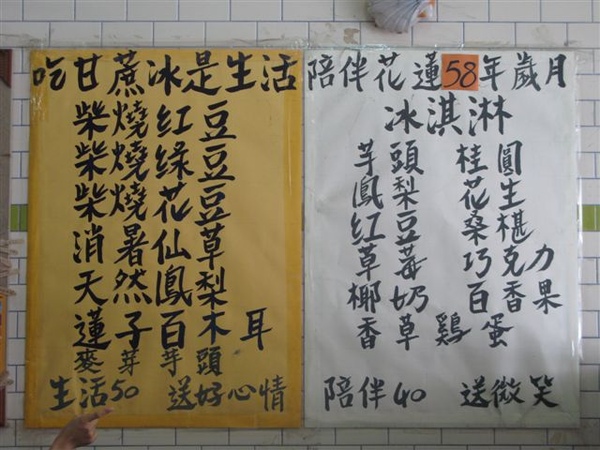 吃甘蔗冰是生活
柴燒紅豆
柴燒綠豆
柴燒花豆
消暑仙草
天然鳳梨
蓮子百木耳
麥芽芋頭
生活50 送好心情
陪伴花蓮58年歲月
冰淇淋
芋頭 桂圓
鳳梨 花生
紅豆 桑椹
草莓 巧克力
椰奶 百香果
香草 雞蛋
陪伴40 送微笑